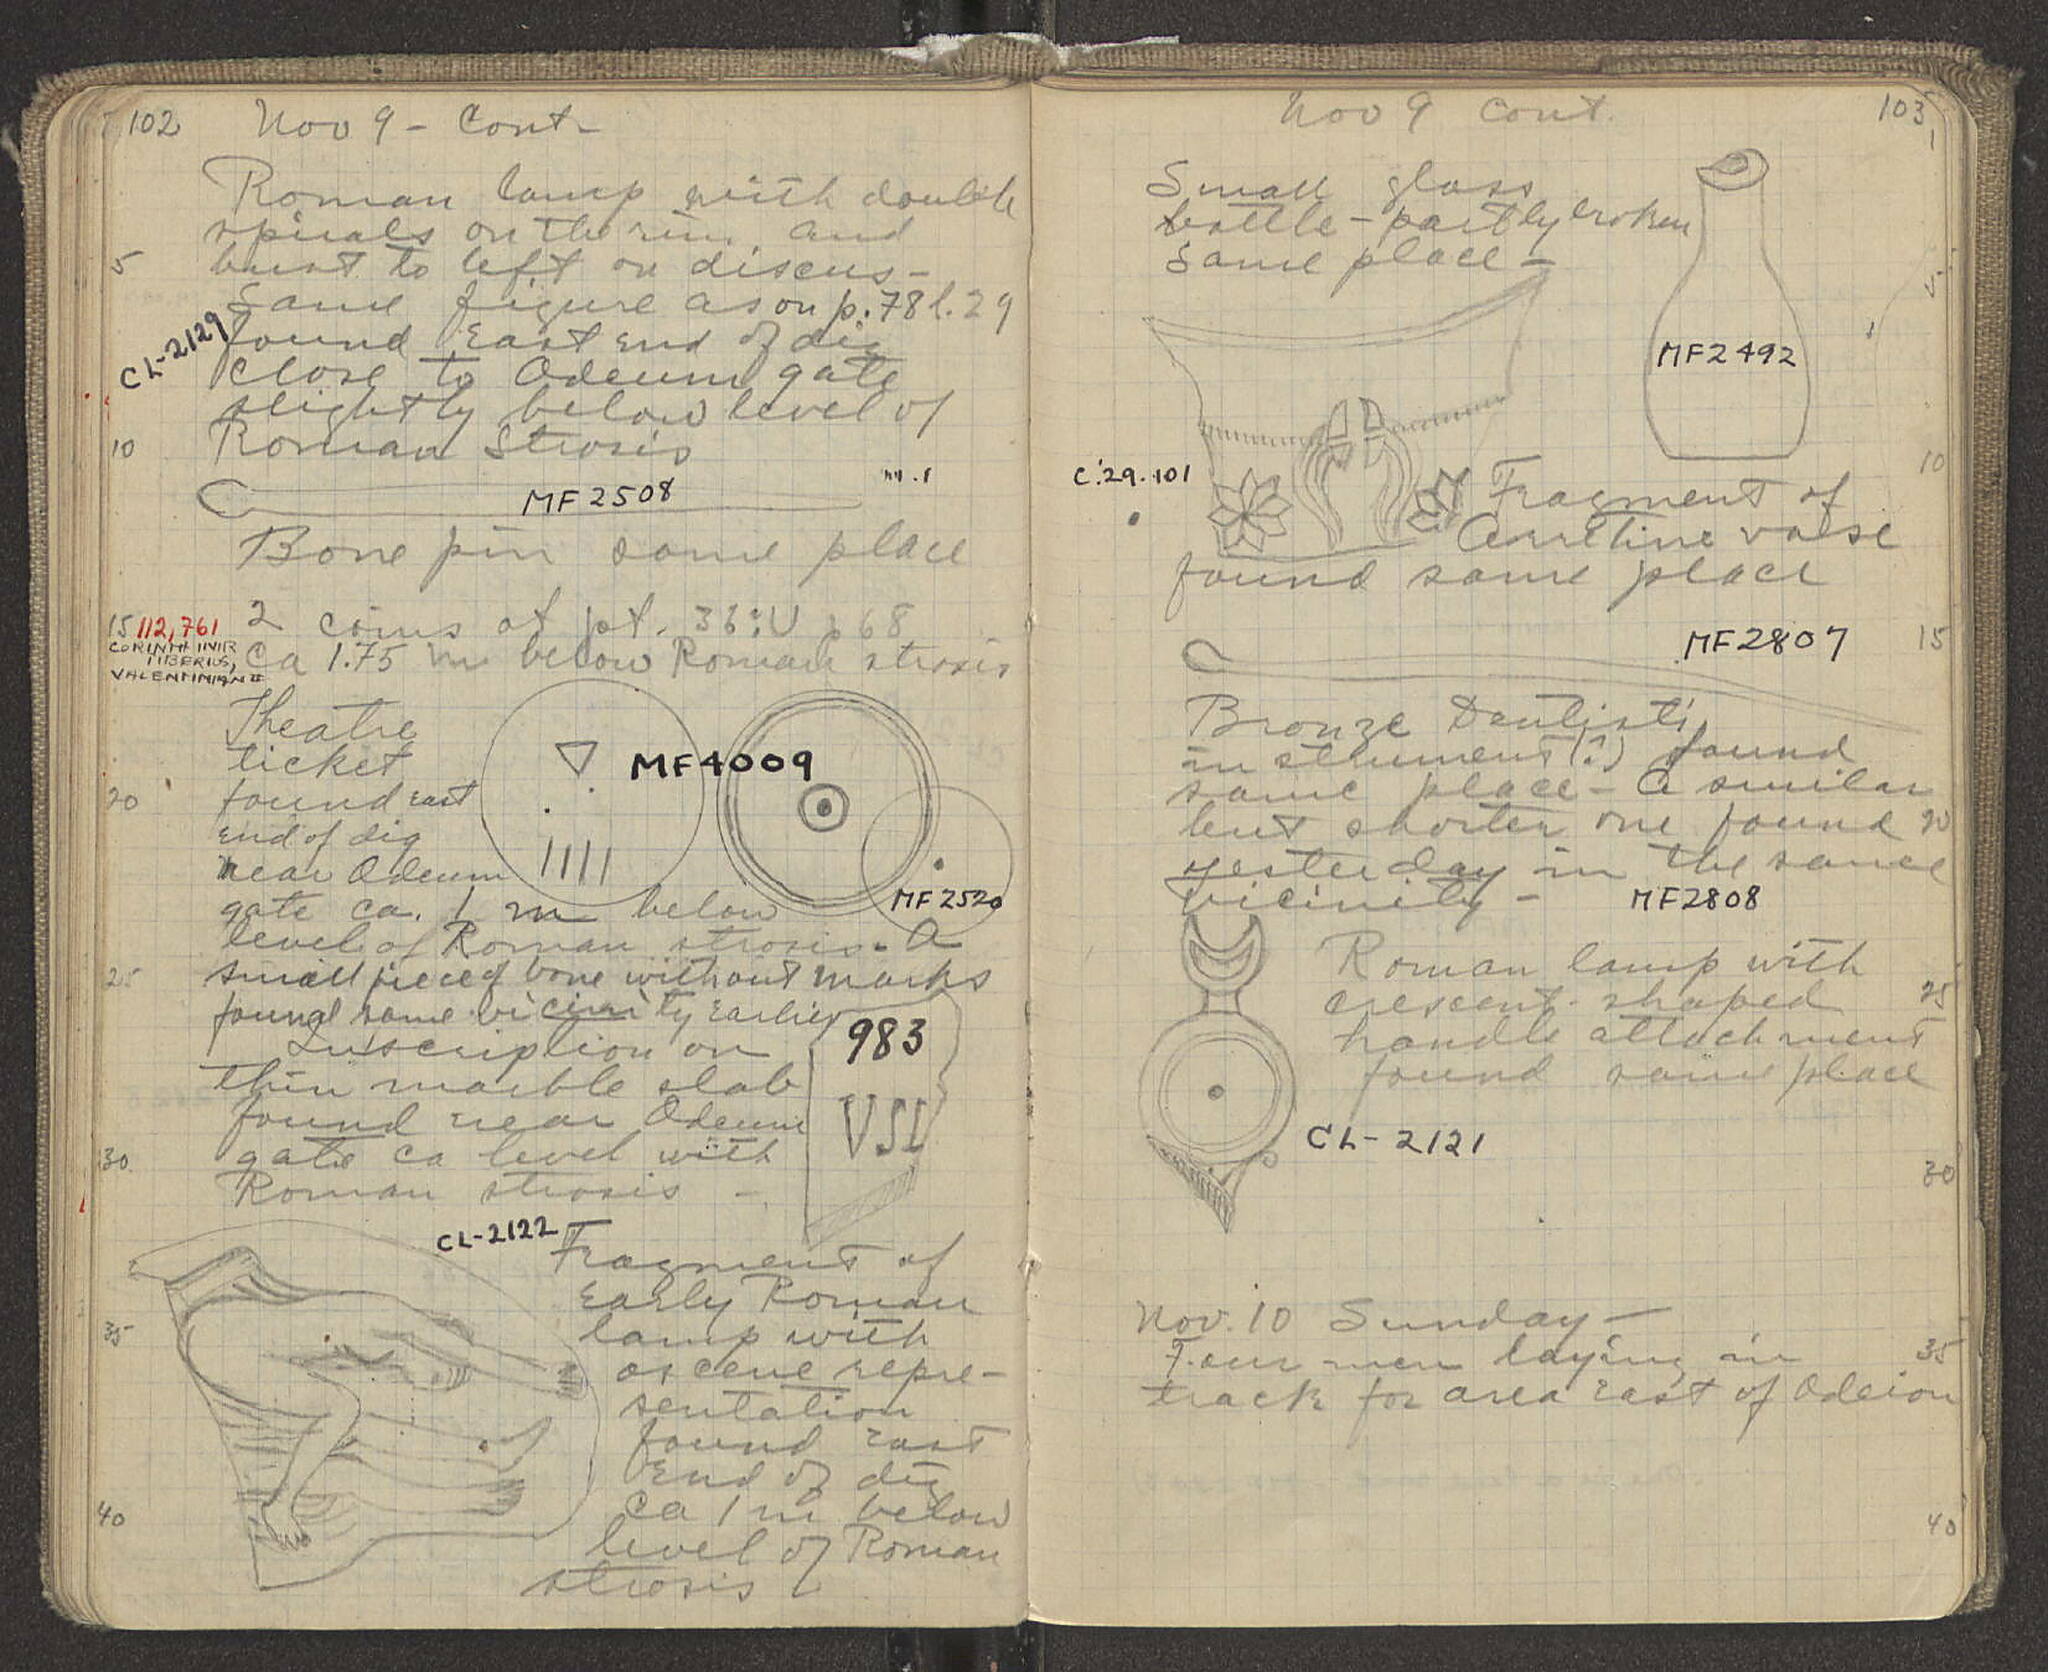 102 Nov 9 - Cont-
Roman lamp with double
spirals on the rim, and
5 bust to left on discus -
Same figure as on p. 78 l. 29
CL-2129
found East end of dig
close to Odeum gate
slightly below level of
10 Roman Strosis
MF2508
Bone pin same place
15 112,761 2 coins at pt. 36:U
CORINTH IIVIR
TIBERIUS,
VALENTINIAN II
ca 1.75 m below Roman strosis
Theatre
ticket
20 found East
end of dig
near Odeum
gate ca. 1 m below
MF4009
MF2520
level of Roman strosis - A
25 small piece of bone without marks
found same vicinity earlier
Inscription on
thin marble slab
found near Odeum
30 gate ca level with
Roman strosis -
983
VSL
CL-2122
Fragment of
Early Roman
35 lamp with
oscene repre-
sentation
found East
End of dig
40 ca 1 m below
level of Roman
strosis
Nov 9 Cont. 103
1
Small glass
bottle - partly broken
Same place -
5
MF2492
10
C.'29.101
Fragment of
Arretine vase
found same place
MF2807 15
Bronze Dentist's
instrument (?) found
same place - A similar
but shorter one found 20
yesterday in the same
vicinity - MF2808
Roman lamp with
crescent-shaped 25
handle attachment
found same place
CL-2121
30
Nov. 10 Sunday -
Four men laying in 35
track for area East of Odeion
40